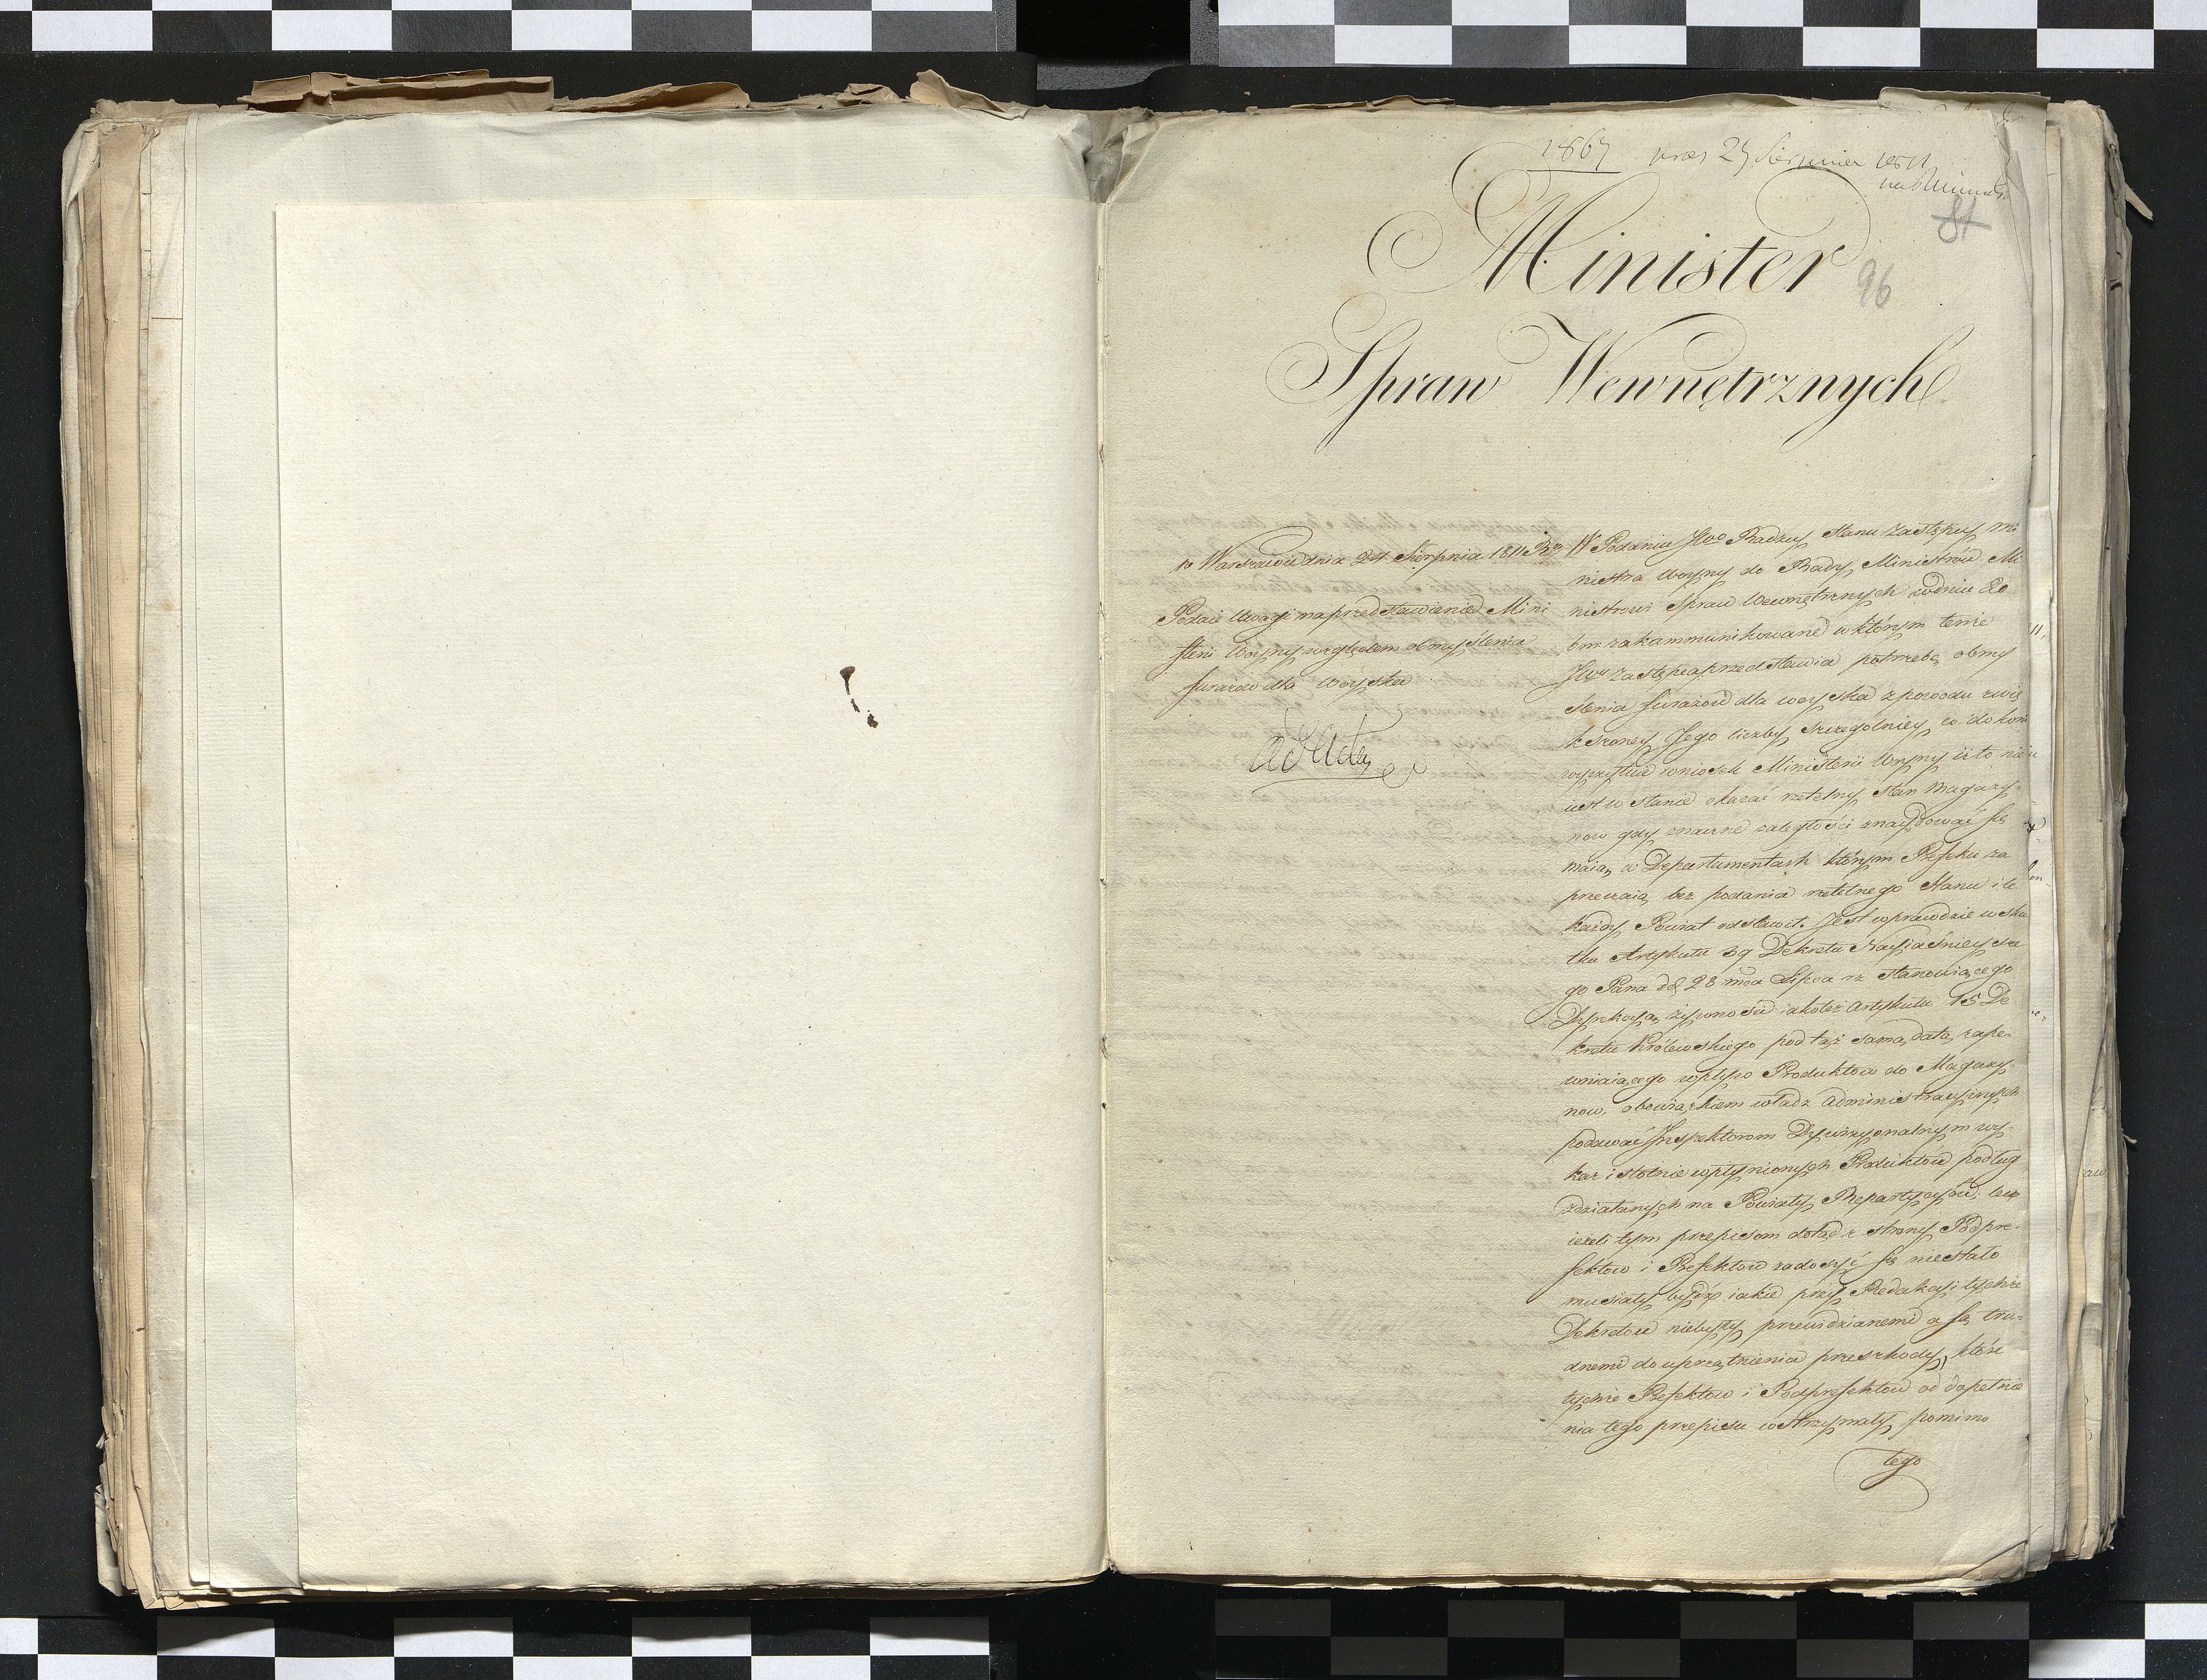 1867 27 Sierpnia 1811
81
96
Minister
Spraw Wewnętrznych
w Warszawie dnia 24 Sierpnia 1811 Rº
Podaie Uwagi na przedstawienie Mini
steri Woyny względem obmyślenia
furażow dla Woyska
ad acta
W Podaniu JWo Radzcy Stanu Zastępcy Mi
nistra Woyny do Rady Ministrów Mi
nistrowi Spraw Wewnętrznych w dniu 20
bm zakommunikowane w którym tenże
JWy Zastępca przedstawia potrzebę obmy
ślenia furażow dla woyska z powodu zwię
kszoney Jego liczby szczegolniey co do koni
wszystkie wniosek Ministeri Woyny iż to nie
iest w stanie okazać rzetelny stan Magazy-
now gdy znaczne zaległości znaydować się
maią w Departamentach którym Prefekci za
przeczaią bez podania rzetelnego Stanu ile
każdy Powiat odstawił. Jest wprawdzie w sku
tku Artykułu 39 Dekretu Nayiaśnieysze
go Pana dd 28 mca Lipca rz stanowiącego
Dyrekcyą żywności iakoteż Artykułu 15 De
kretu Królewskiego pod taż samą datą zape-
wniaiącego wpływ Produktow do Magazy-
now, obowiązkiem władz Administracyinych
podawać Inspektorom Dywizyonalnym wy-
kaz istotnie wpłynionych Produktow podług
zdziałanych na Powiaty Repartycyow, lecz
ieżeli tym przepisom dotąd z strony Podpre-
fektow i Prefektow zadosyć się niestało
musiały bydź iakie przy Redakcyi tychże
Dekretow niebyły przewidzianemi a są tru-
dnemi do uprzątnienia przeszkody, które
tychże Prefektow i Podprefektow od dopełnie
nia tego przepisu wstrzymały, pomimo
tego